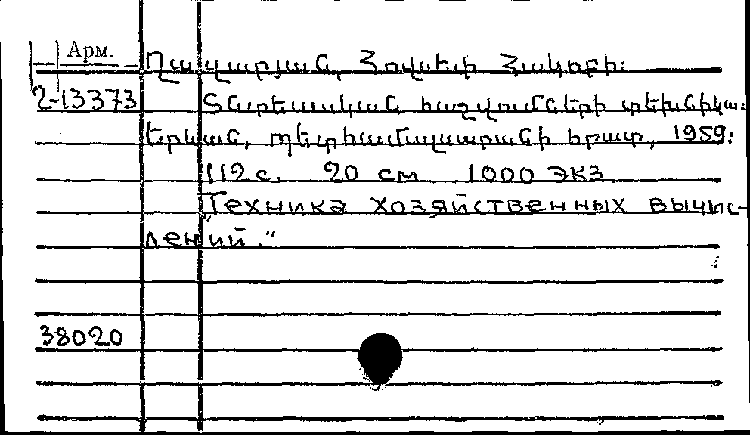 Арм.
Ղազարյան, Հովսեփ Հակոբի։
2-13373 Տնտեսական հաշվումների տեխնիկա։
Երևան, պետհամալսարանի հրատ, 1959։
112 с. 20 см 1000 экз
"Техника хозяйственных вычис-
лений."
38020